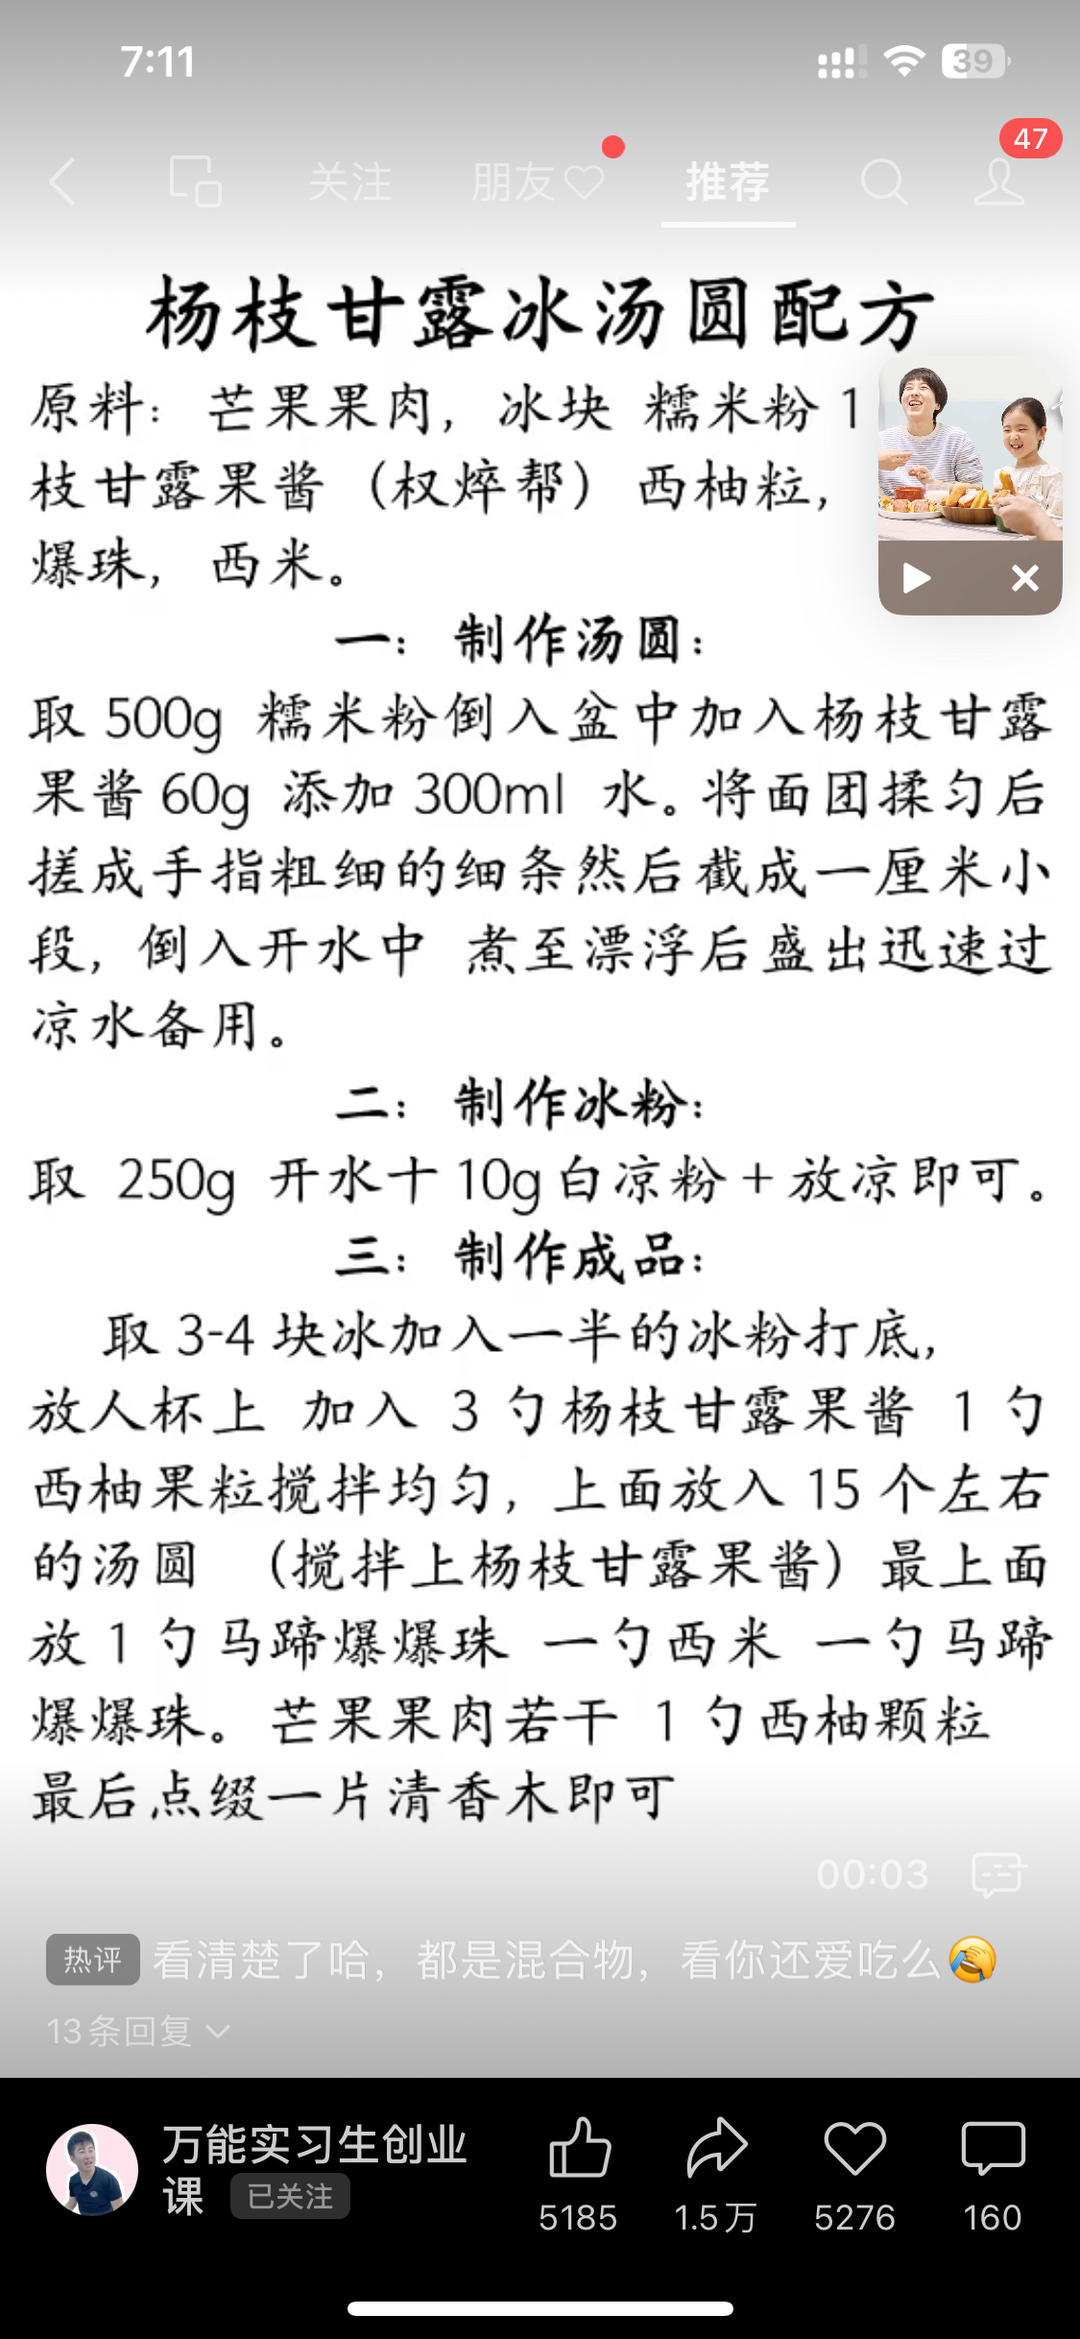 7:11
39
47
关注
朋友
推荐
杨枝甘露冰汤圆配方
原料：芒果果肉，冰块 糯米粉 1
枝甘露果酱（权焠帮）西柚粒，
爆珠，西米。
一：制作汤圆：
取 500g 糯米粉倒入盆中加入杨枝甘露
果酱 60g 添加 300ml 水。将面团揉匀后
搓成手指粗细的细条然后截成一厘米小
段，倒入开水中 煮至漂浮后盛出迅速过
凉水备用。
二：制作冰粉：
取 250g 开水十 10g 白凉粉 + 放凉即可。
三：制作成品：
取 3-4 块冰加入一半的冰粉打底，
放人杯上 加入 3 勺杨枝甘露果酱 1 勺
西柚果粒搅拌均匀，上面放入 15 个左右
的汤圆 （搅拌上杨枝甘露果酱）最上面
放 1 勺马蹄爆爆珠 一勺西米 一勺马蹄
爆爆珠。芒果果肉若干 1 勺西柚颗粒
最后点缀一片清香木即可
00:03
热评 看清楚了哈，都是混合物，看你还爱吃么🤣
13条回复
万能实习生创业
课 已关注
5185
1.5万
5276
160